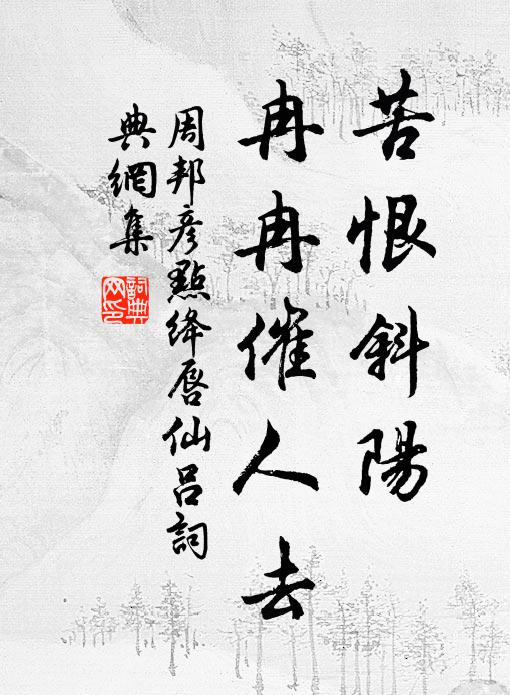 苦恨斜陽
冉冉催人去
周邦彥點絳唇仙呂詞
典網集
詞典
网印